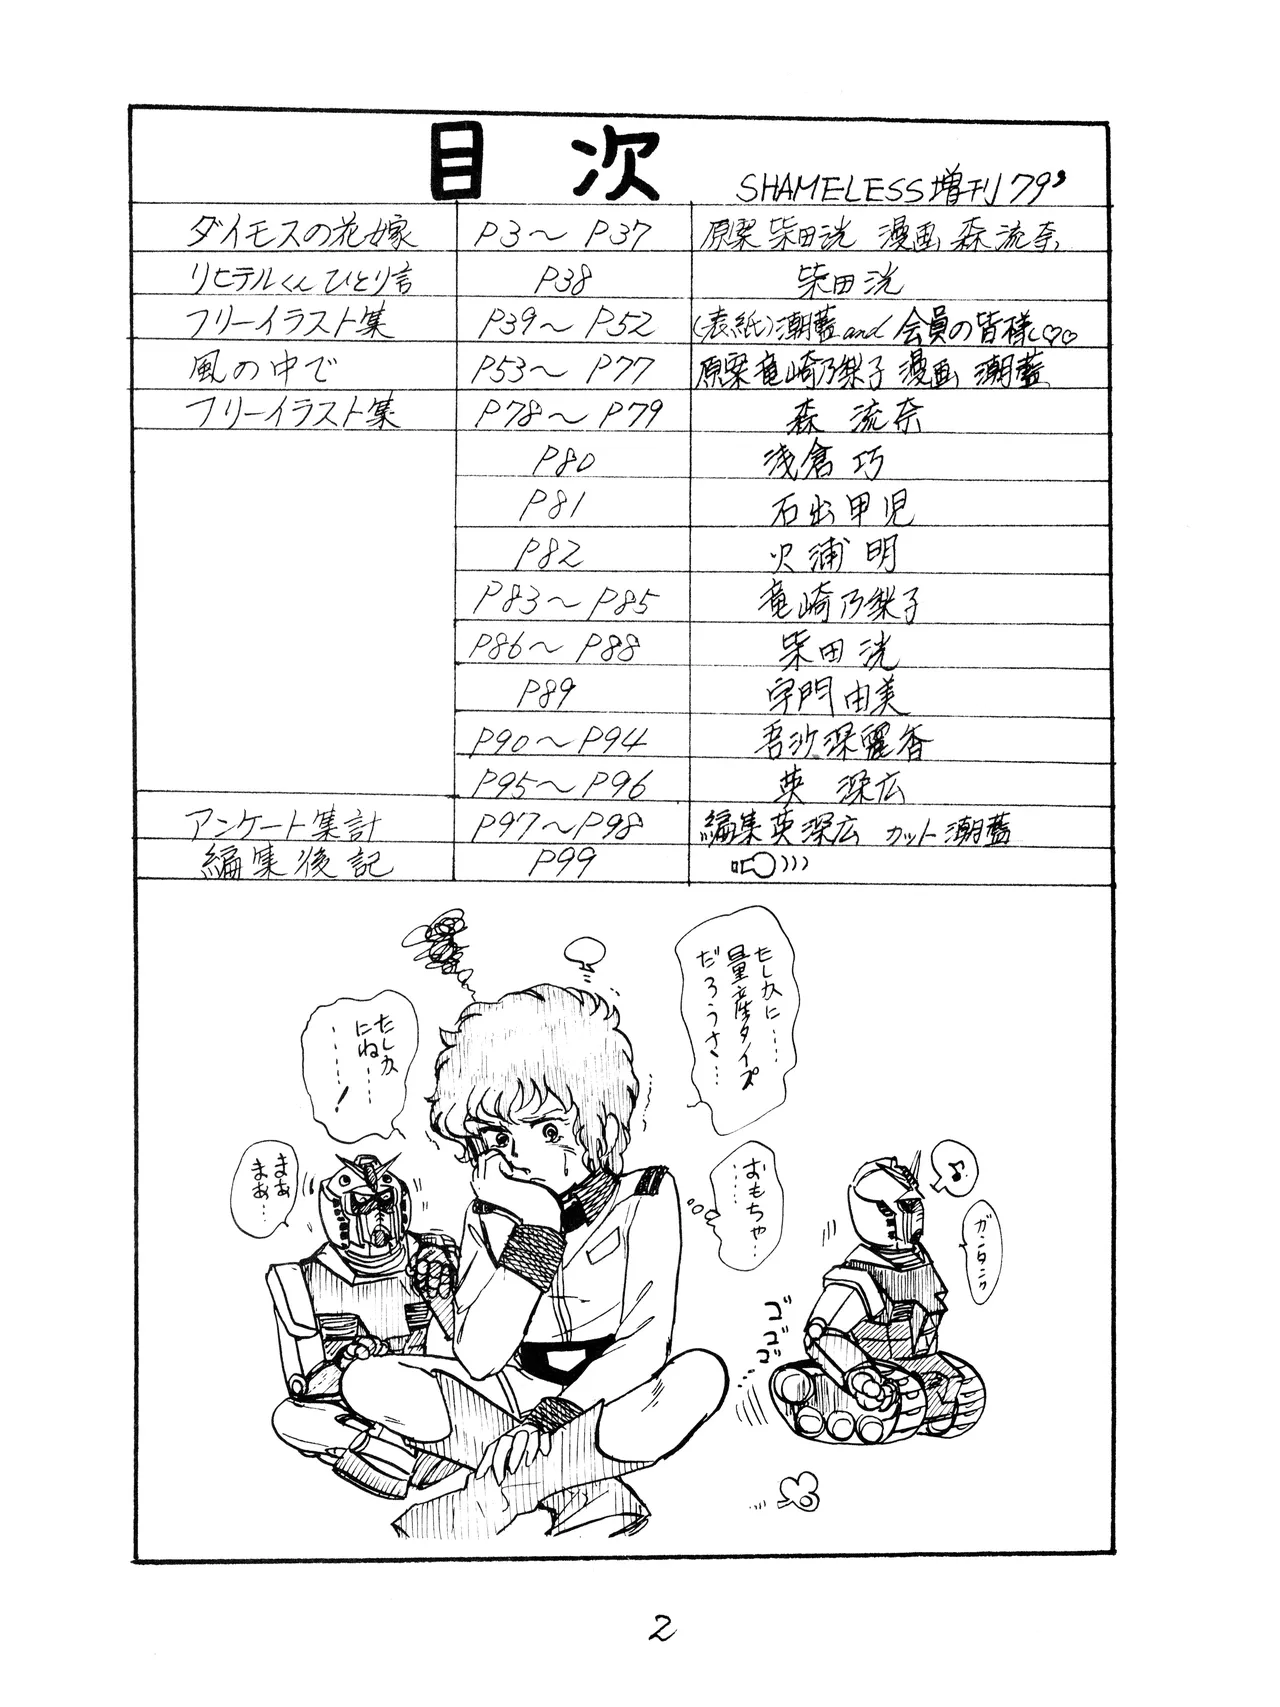 目次
SHAMELESS増刊79'
ダイモスの花嫁 P3～P37 原案 柴田洸 漫画 森流奈
リヒテルくんひとり言 P38 柴田洸
フリーイラスト集 P39～P52 (表紙)潮藍and会員の皆様♡♡
風の中で P53～P77 原案竜崎乃梨子 漫画 潮藍
フリーイラスト集 P78～P79 森流奈
P80 浅倉巧
P81 石出甲児
P82 火浦明
P83～P85 竜崎乃梨子
P86～P88 柴田洸
P89 宇門由美
P90～P94 吾沙深麗香
P95～P96 英深広
アンケート集計 P97～P98 編集英深広 カット潮藍
編集後記 P99
たしかに……
量産タイプ
だろうさ…
たしか
にね…
……!
まあ
まあ…
おもちゃ…
……
ガンタンク
ゴゴゴ
2